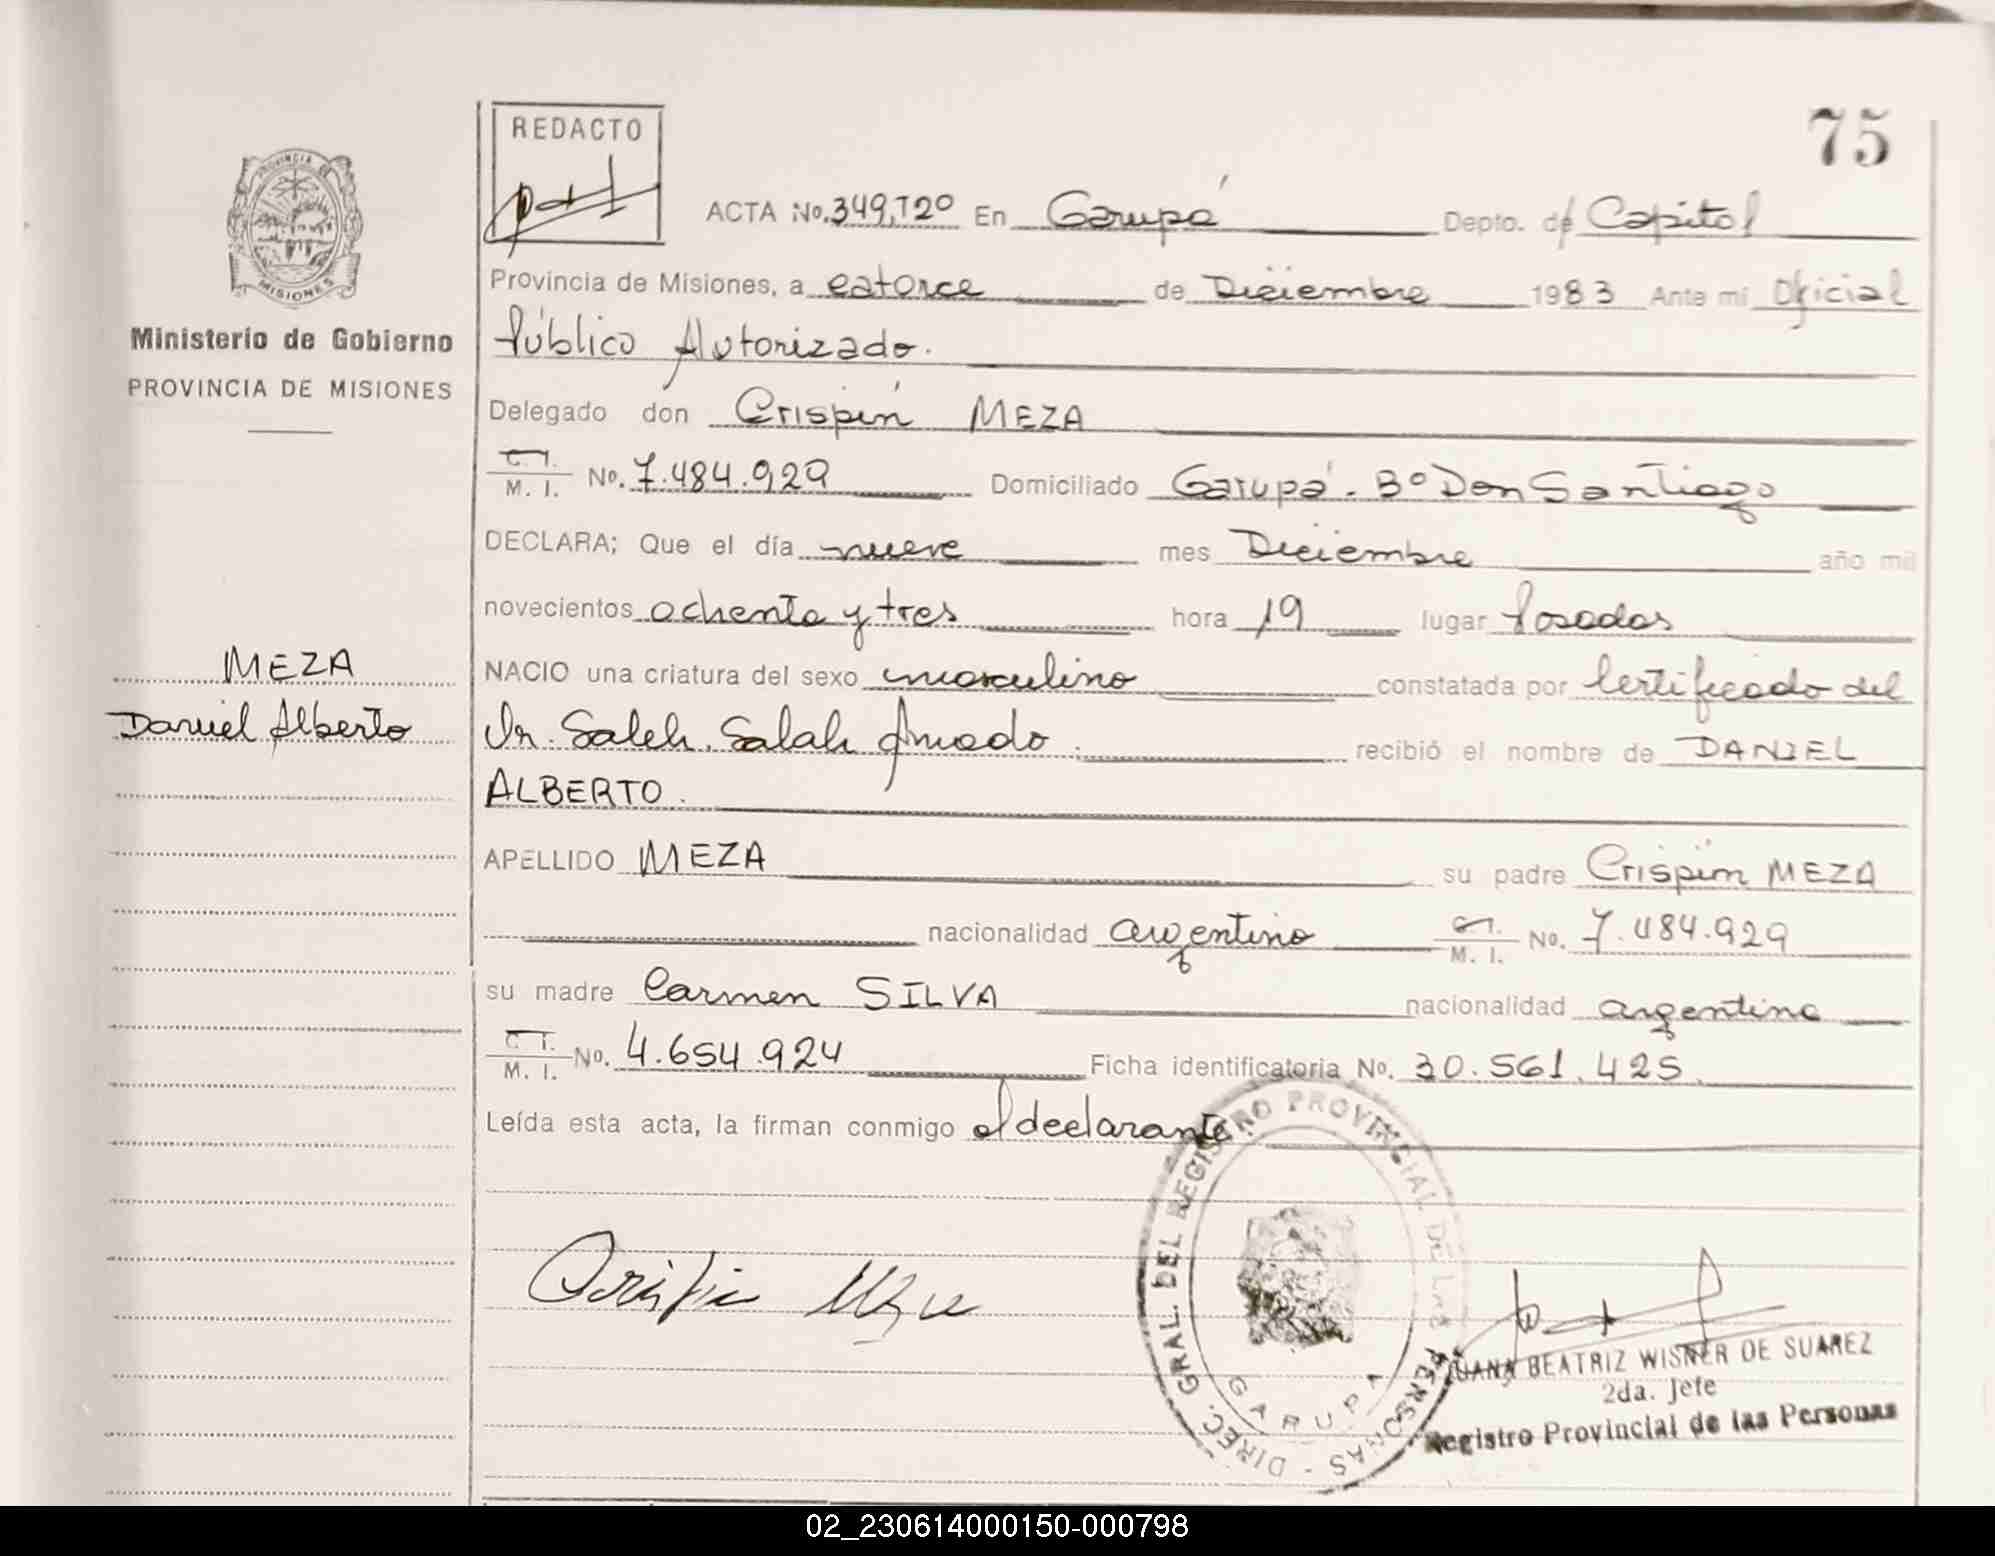 75
REDACTO
ACTA No. 349, Tº 2º En Garupá Depto. de Capital
Provincia de Misiones, a catorce de Diciembre 1983 Ante mí Oficial
Público Autorizado.
Ministerio de Gobierno
PROVINCIA DE MISIONES
Delegado don Crispín MEZA
C. I.
M. I. No. 7.484.929 Domiciliado Garupá. Bº Don Santiago
DECLARA; Que el día nueve mes Diciembre año mil
novecientos ochenta y tres hora 19 lugar Posadas
MEZA
Daniel Alberto
NACIO una criatura del sexo masculino constatada por Certificado del
Dr. Saleh, Salah Amado. recibió el nombre de DANIEL
ALBERTO.
APELLIDO MEZA su padre Crispín MEZA
nacionalidad argentino C. I.
M. I. No. 7.484.929
su madre Carmen SILVA nacionalidad argentina
C. I.
M. I. No. 4.654.924 Ficha identificatoria No. 30.561.425
Leída esta acta, la firman conmigo el declarante.
DIREC. GRAL. DEL REGISTRO PROVINCIAL DE LAS PERSONAS -
GARUPA
JUANA BEATRIZ WISNER DE SUAREZ
2da. Jefe
Registro Provincial de las Personas
02_230614000150-000798